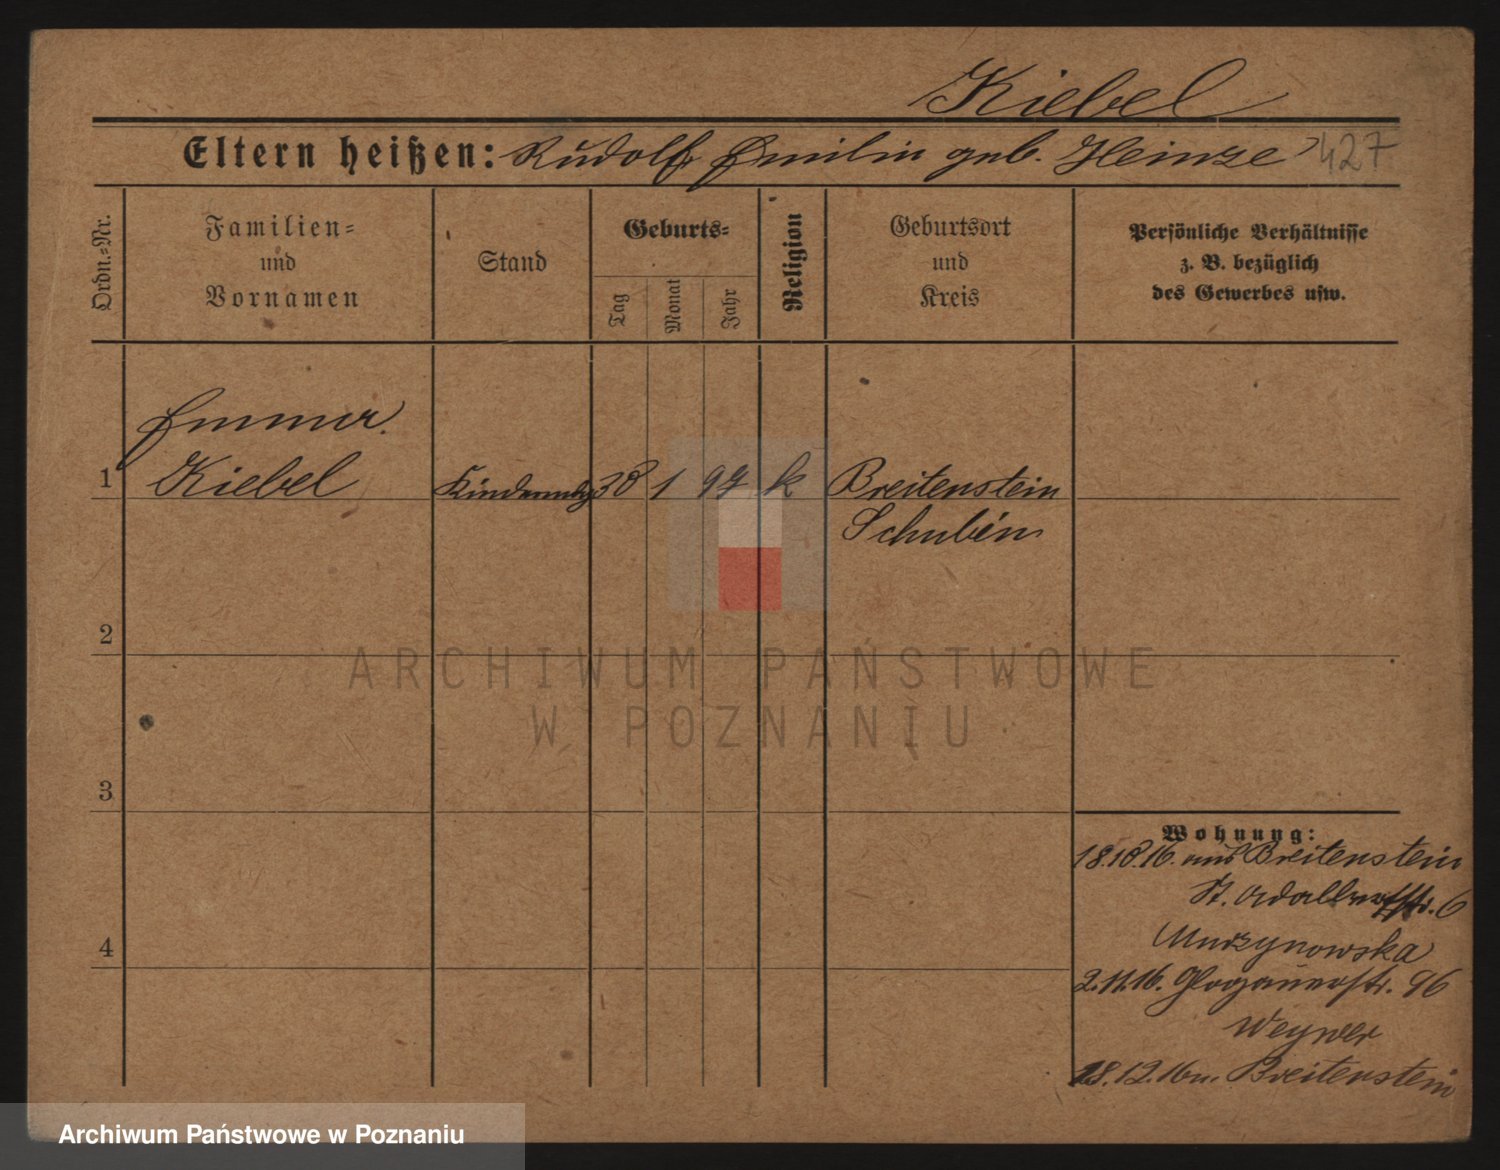 Kiebel
Eltern heißen: Rudolf Emilin geb. Heinze 427
Ordn.-Nr.
Familien-
und
Vornamen
Stand
Geburts-
Tag
Monat
Jahr
Religion
Geburtsort
und
Kreis
Persönliche Verhältnisse
z. B. bezüglich
des Gewerbes usw.
1
Kiebel
1 97 k
Breitenstein
Schubin
2
ARCHIWUM PAŃSTWOWE
W POZNANIU
3
4
Wohnung:
18.10.16. aus Breitenstein
St. Adalbertstr. 6
Murzynowska
2.11.16. Glogauerstr. 96
18.12.16 n. Breitenstein
Archiwum Państwowe w Poznaniu